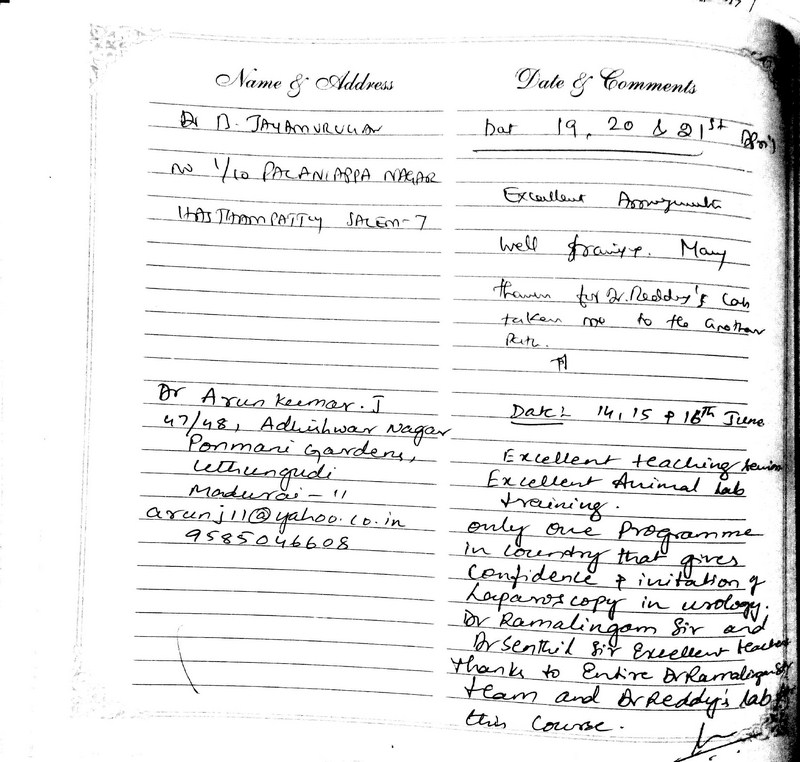 Name & Address
Dr B. JAYAMURUGAN
NO 1/10 PALANIAPPA NAGAR
HASTHAMPATTY SALEM-7
Dr Arun Kumar. J
47/48, Adhishwar Nagar
Ponmani Gardens,
Uthungudi
Madurai - 11
arunj11@yahoo.co.in
9585046608
Date & Comments
Dat 19, 20 & 21st April
Excellent Arrangements
Well Many
for Dr. Reddy's Lab
taken me to the another
Path.
Date:- 14, 15 & 16th June
Excellent teaching
Excellent Animal Lab
training.
only one Programme
in country that gives
confidence & initation of
Laparoscopy in urology.
Dr Ramalingam Sir and
Dr Senthil Sir Excellent teachers
thanks to Entire Dr Ramalingam Sir
team and Dr Reddy's lab
this course.